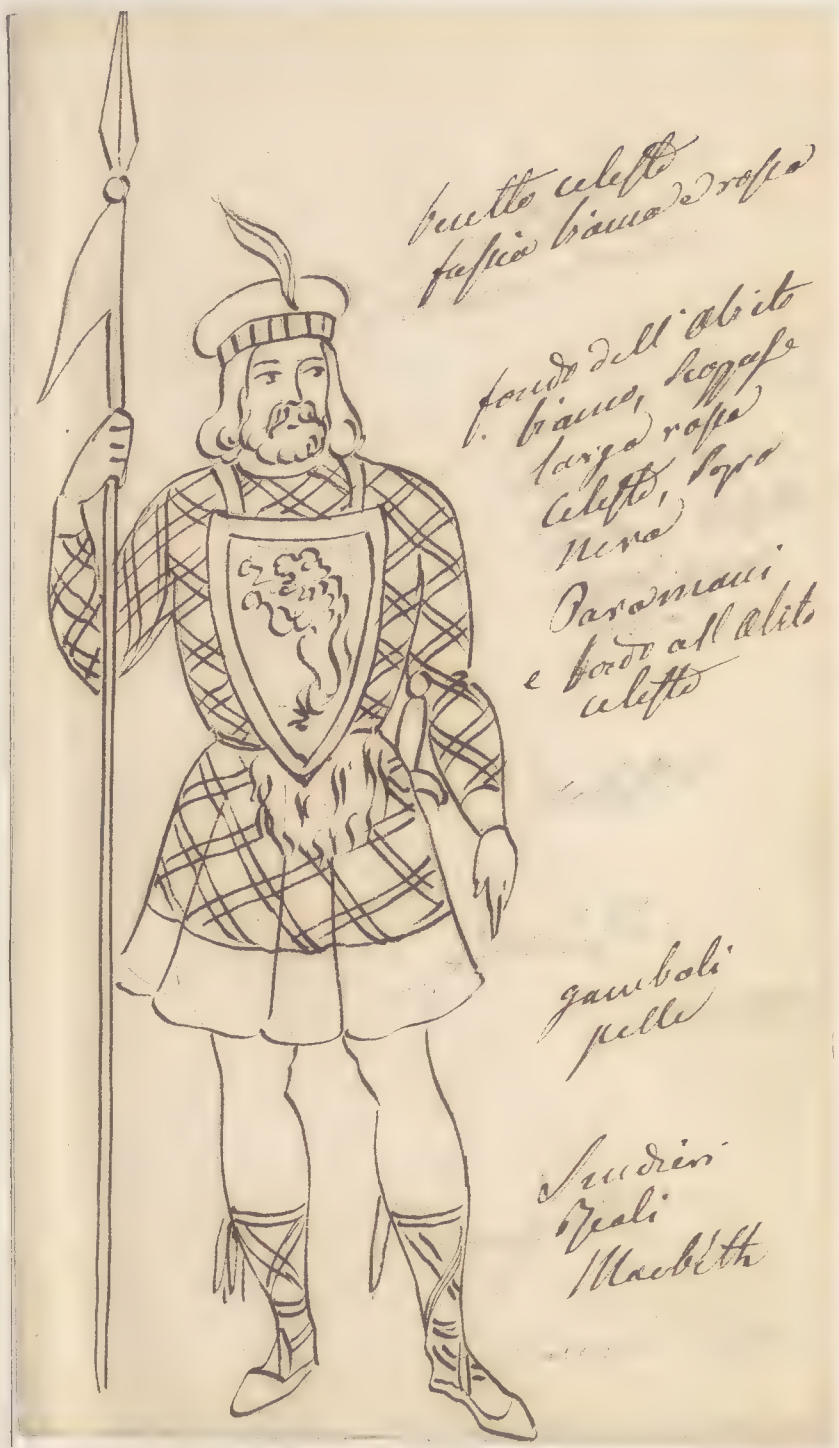 beretto celeste
fascia bianca e rossa
fondo dell'Abito
bianco, Scozzese
largo rosso
celeste, sopra
nero
Paramani
e bordo all'Abito
celeste
gamboli
pelle
Scudieri
Reali
Macbeth